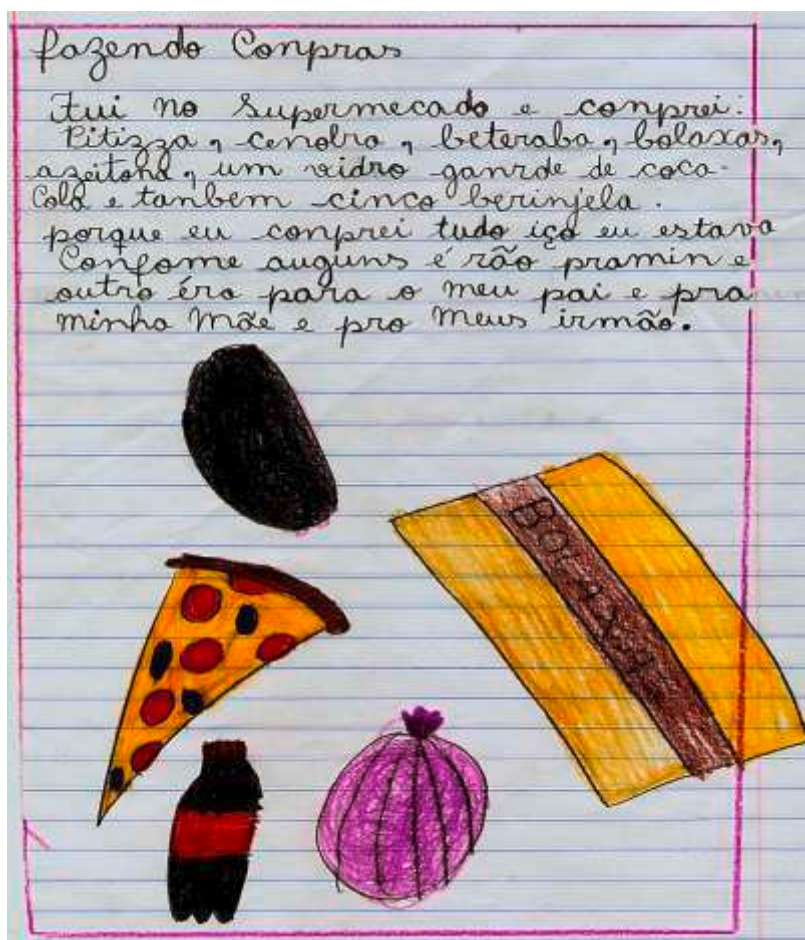 fazendo Conpras
Fui no Supermecado e conprei:
Pitizza, cenolra, beteraba, bolaxas,
azeitona, um vidro ganrde de coca-
Cola e tanbem cinco berinjela.
porque eu conprei tudo iço eu estava
Confome auguns é rão pramin e
outro éra para o meu pai e pra
minha Mãe e pro Meus irmão.
BOLAXA